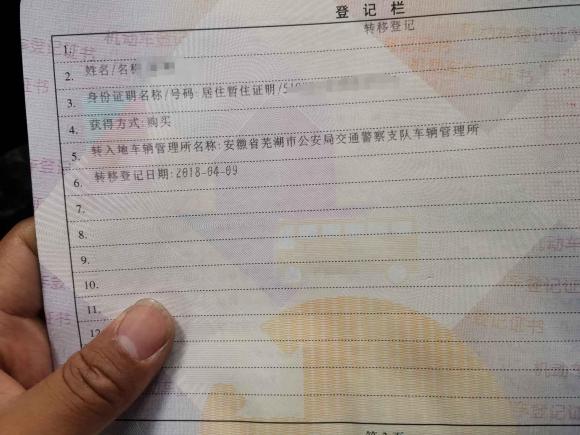 登记栏
转移登记
1.
2. 姓名/名称
3. 身份证明名称/号码:居住暂住证明/51
4. 获得方式:购买
5. 转入地车辆管理所名称:安徽省芜湖市公安局交通警察支队车辆管理所
6. 转移登记日期:2018-04-09
7.
8.
9.
10.
11.
12
机动车登记证书